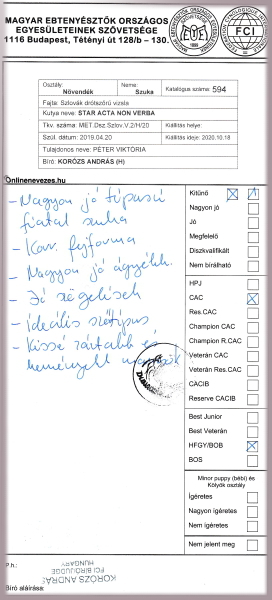 MAGYAR EBTENYÉSZTŐK ORSZÁGOS
EGYESÜLETEINEK SZÖVETSÉGE
1116 Budapest, Tétényi út 128/b – 130.
FCI
Osztály: Neme: Katalógus száma: 594
Növendék Szuka
Fajta: Szlovák drótszőrű vizsla
Kutya neve: STAR ACTA NON VERBA
Tkv. száma: MET.Dsz.Szlov.V.2/H/20 Kiállítás helye:
Szül. dátum: 2019.04.20 Kiállítás ideje: 2020.10.18
Tulajdonos neve: PÉTER VIKTÓRIA
Bíró: KORÓZS ANDRÁS (H)
Onlinenevezes.hu
- Nagyon jó típusú
fiatal szuka
- Kor. fejforma
- Nagyon jó ágyék
- Jó szögelések
- Ideális szőrtípus
- Kissé zártabb és
Kitűnő
Nagyon jó
Jó
Megfelelő
Diszkvalifikált
Nem bírálható
HPJ
CAC
Res.CAC
Champion CAC
Champion R.CAC
Veterán CAC
Veterán Res.CAC
CACIB
Reserve CACIB
Best Junior
Best Veteran
HFGY/BOB
BOS
Minor puppy (bébi) és
Kölyök osztály
Ígéretes
Nagyon ígéretes
Nem ígéretes
Nem jelent meg
P.h.:
KORÓZS ANDRÁS
FCI BÍRÓ/JUDGE
HUNGARY
Bíró aláírása: